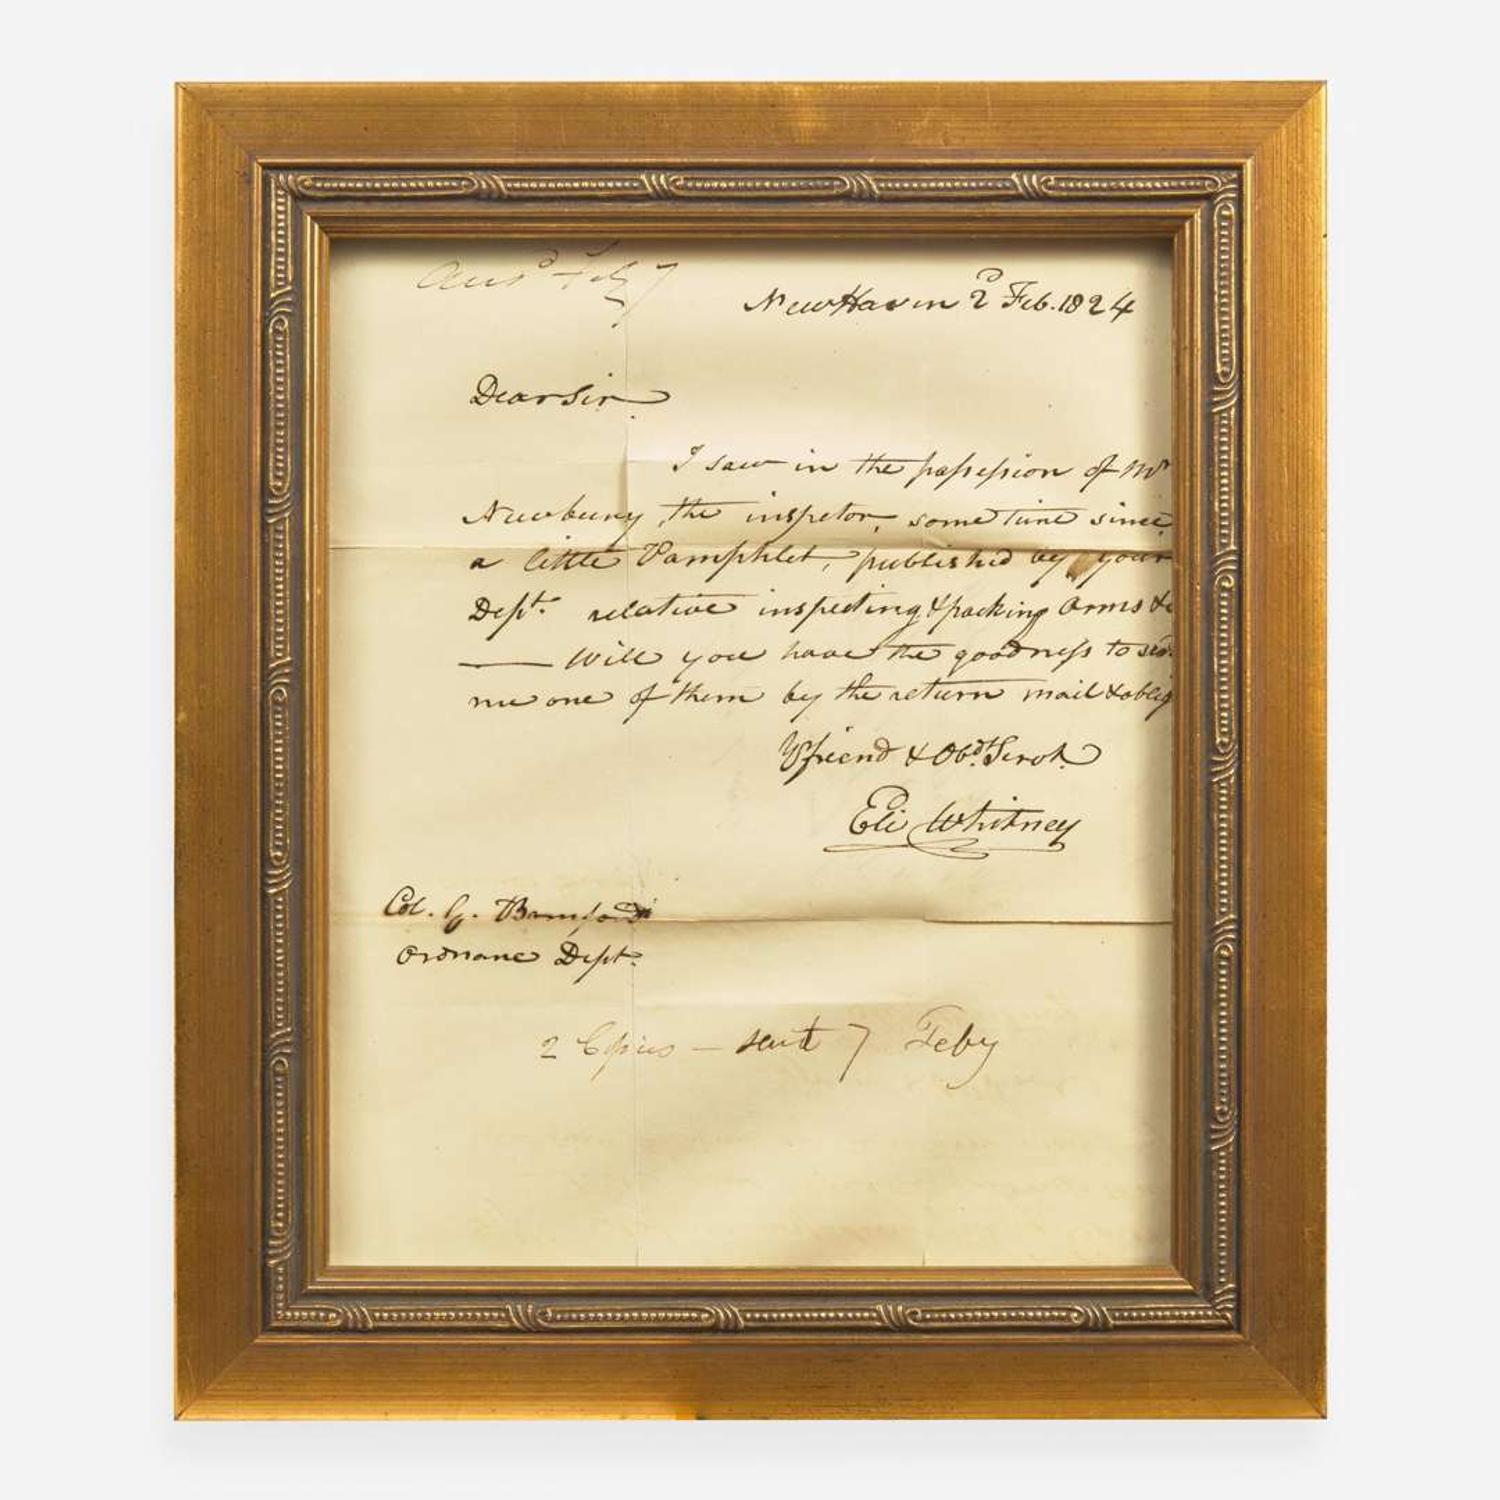 Ansd Feby 7
New Haven 2d Feb. 1824
Dear Sir
I saw in the possession of Mr
Newbury, the inspetor, some time since
a little Pamphlet, published by your
Dept. relative inspecting & packing Arms &c
— Will you have the goodness to send
me one of them by the return mail & oblig
Yr friend & Obdt. Servt.
Eli Whitney
Col. G. Bomford
Ordnance Dept.
2 Copies — sent 7 Feby